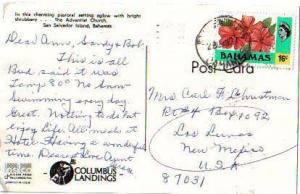 In this charming pastoral setting aglow with bright
shrubbery ... The Adventist Church,
San Salvador Island, Bahamas
Dear Ann, Sandy & Bob
This is all
Bud said it was
Temp 80° No snow
Swimming every day
Great. Nothing to do but
enjoy life. All meals at
Hotel. Having a wonderful
time. Dearest Love Aunt
COLUMBUS
LANDINGS
BAHAMAS
16c
Post Card
Mrs. Carl F. Christman
Rt #4 Box 1092
Los Lunas
New Mexico
U.S.A
87031